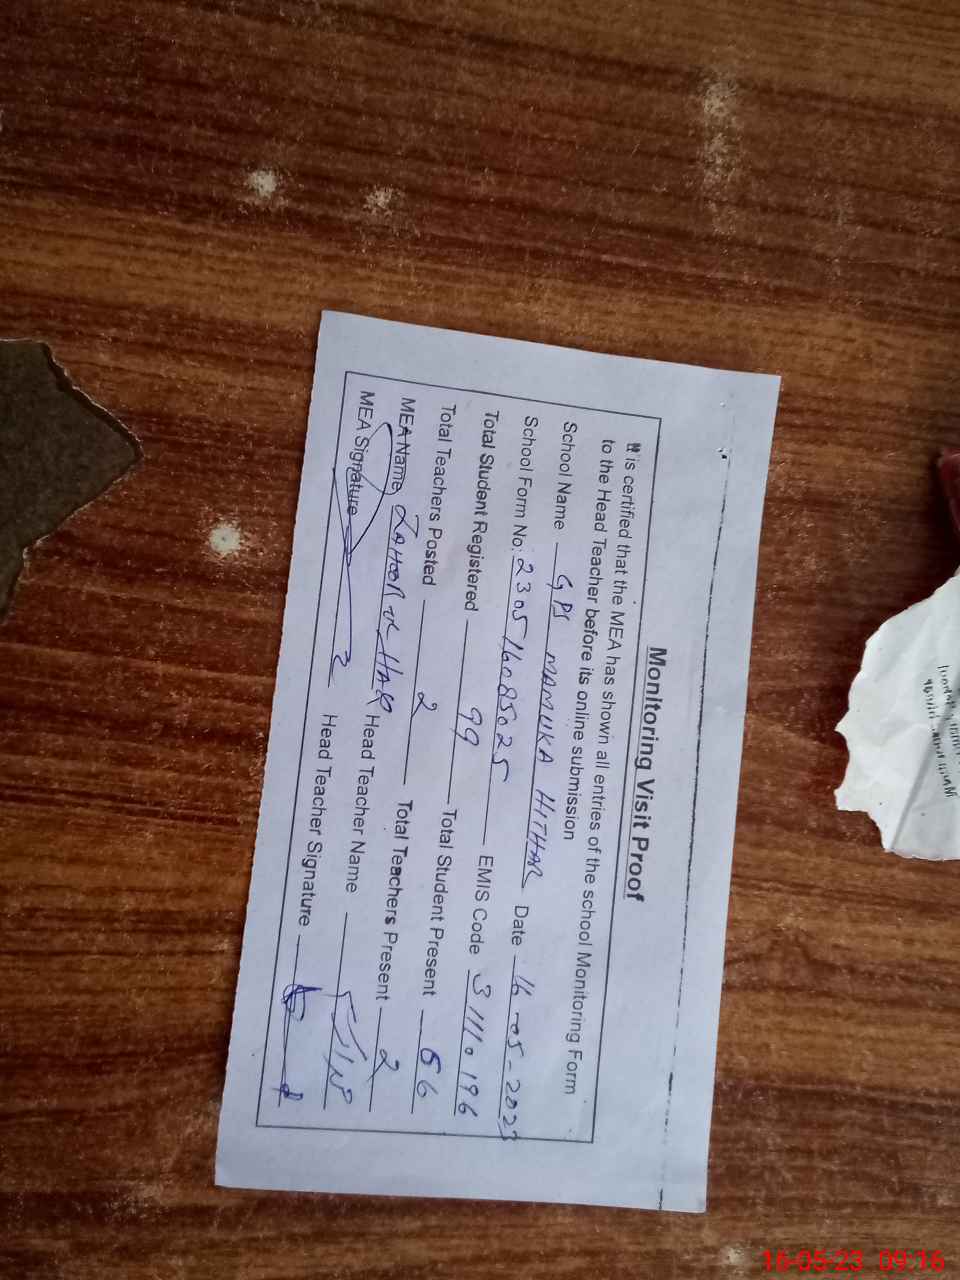 Monitoring Visit Proof
It is certified that the MEA has shown all entries of the school Monitoring Form
to the Head Teacher before its online submission
School Name GPS MAMUKA HITHAR Date 16-05-2023
School Form No: 230516085025 EMIS Code 31110196
Total Student Registered 99 Total Student Present 66
Total Teachers Posted 2 Total Teachers Present 2
MEA Name ZAHOOR UL HAQ Head Teacher Name
MEA Signature Head Teacher Signature
16-05-23 09:16